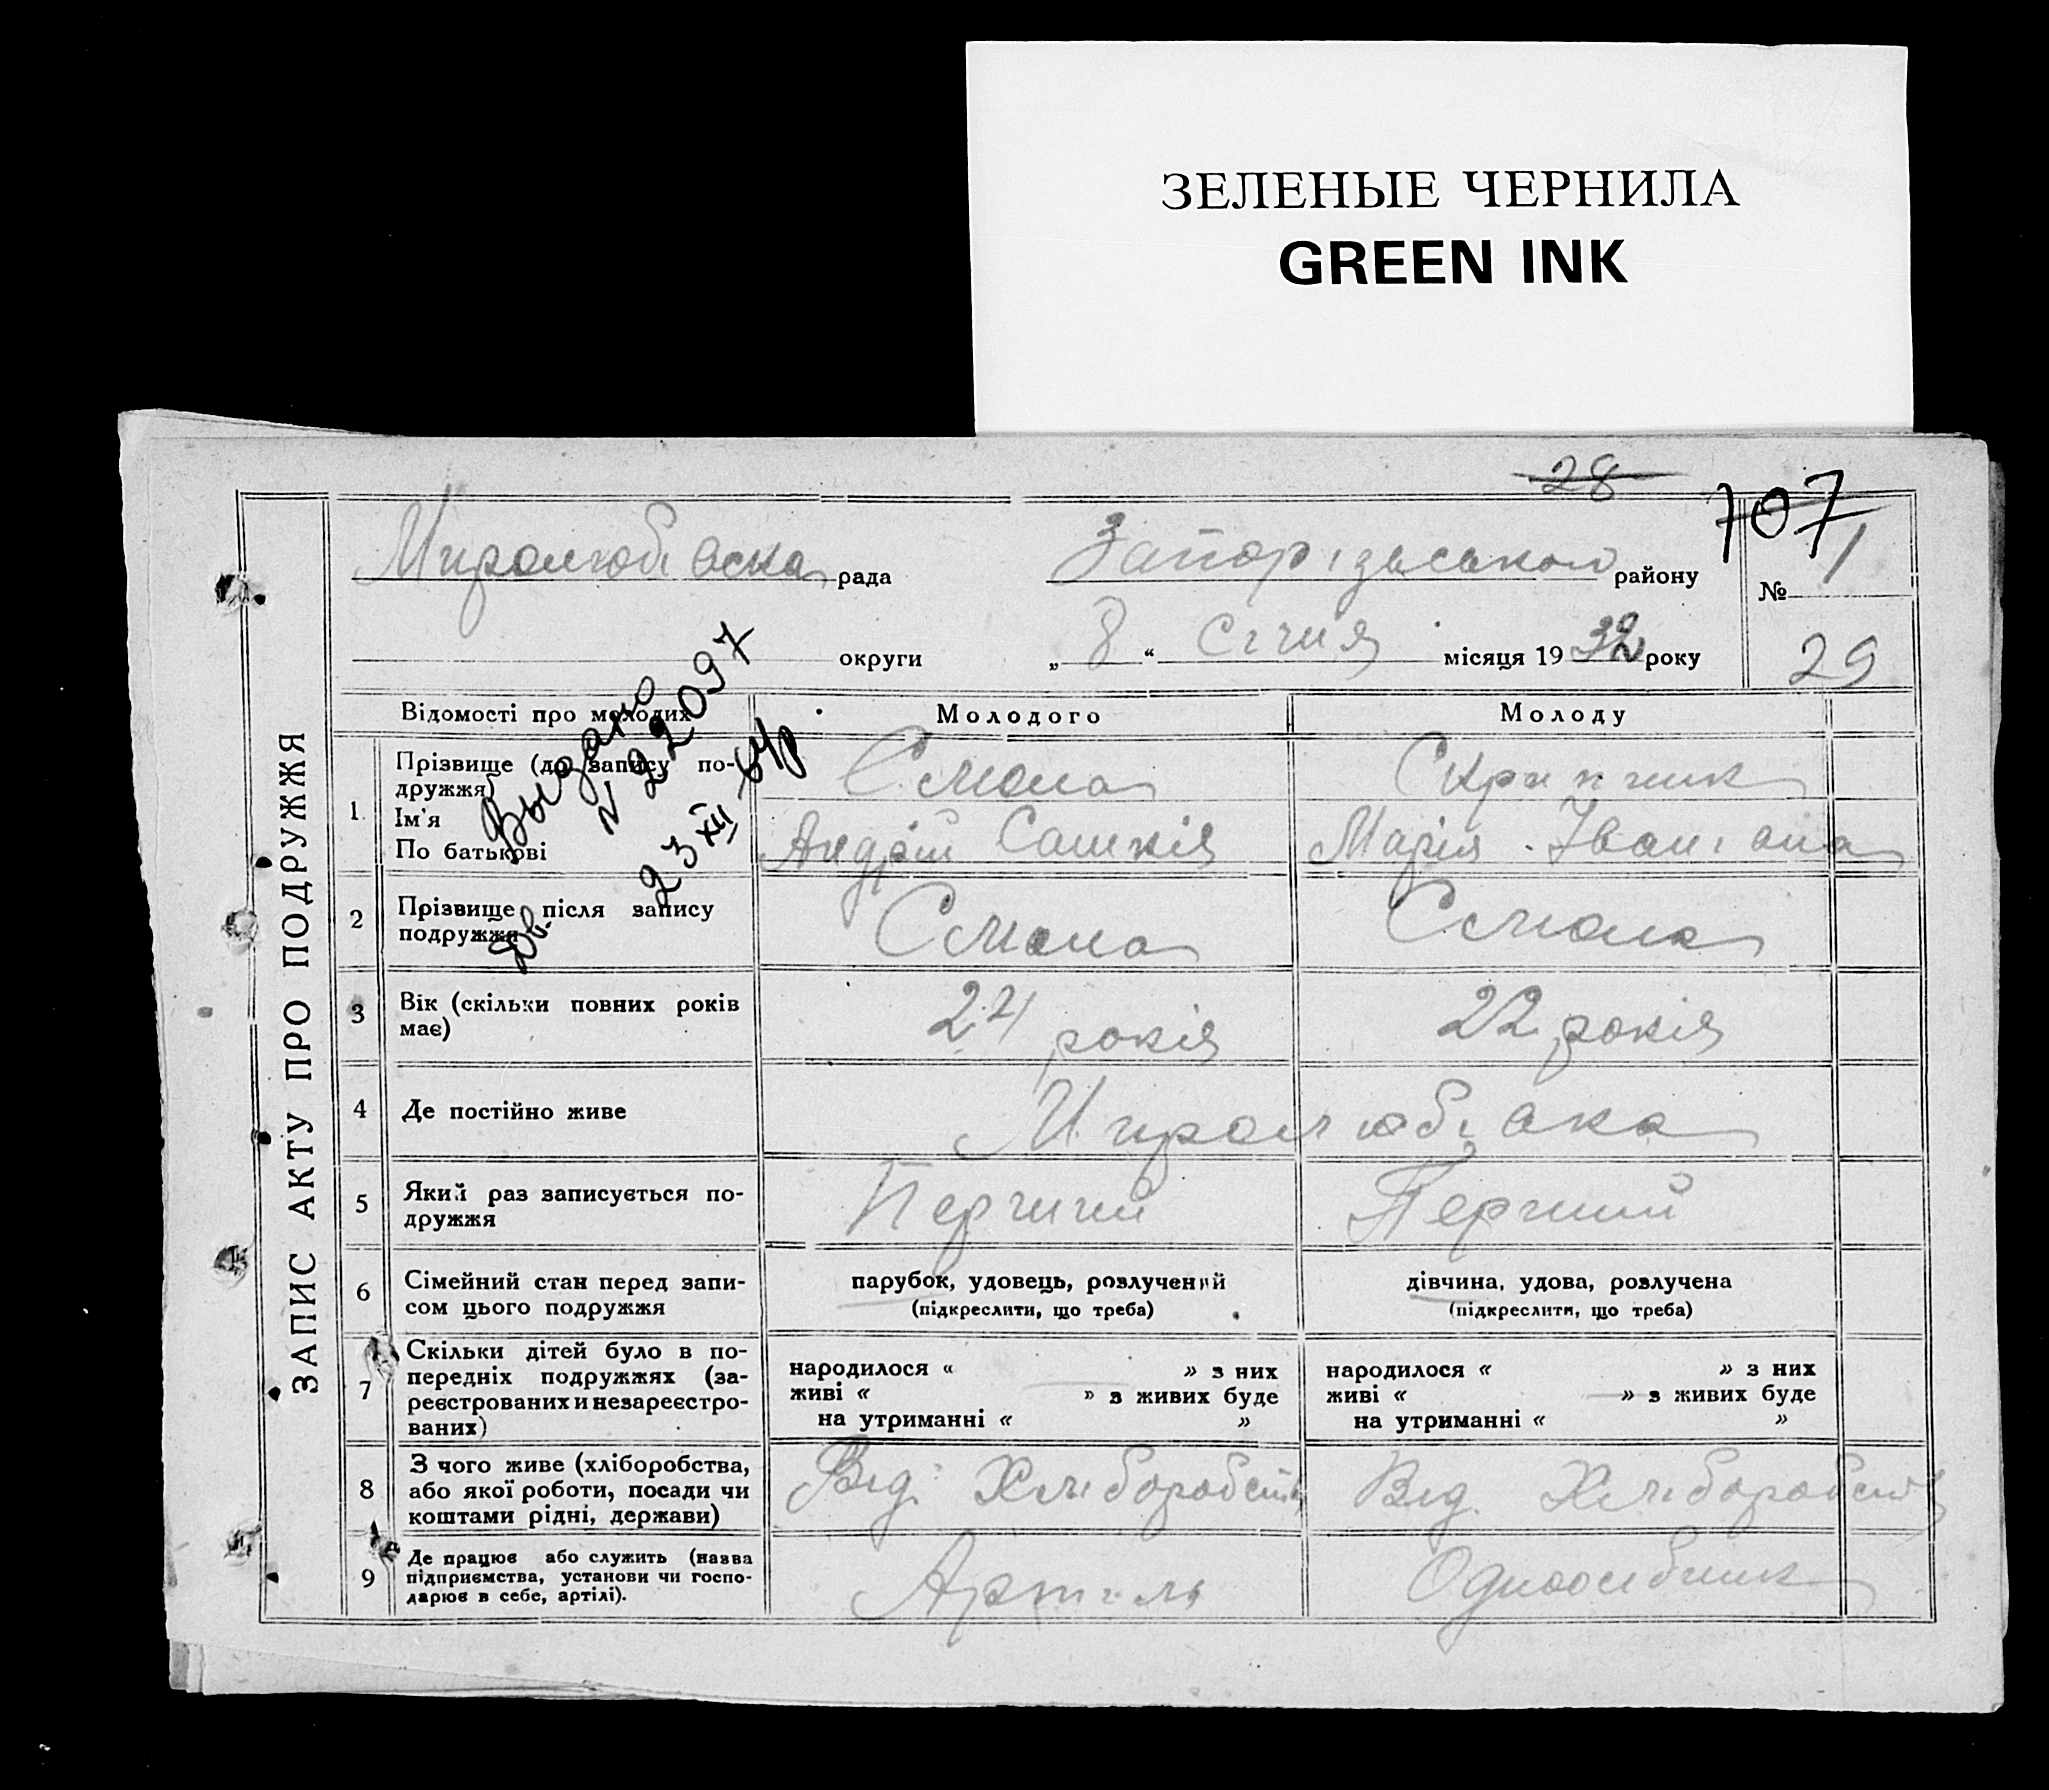 ЗЕЛЕНЫЕ ЧЕРНИЛА
GREEN INK
28
707
Миролюбівска рада Запорізьского району № 1
округи „8“ Січня місяця 1932 року
29
ЗАПИС АКТУ ПРО ПОДРУЖЖЯ
Выдано
№ 22097
23 XII 64р
Відомості про молодих Молодого Молоду
1. Прізвище (до запису подружжя) Смола Скрипник
Ім'я
По батькові Андрій Марія Іванівна
2 Прізвище після запису подружжя Смола Смола
3 Вік (скільки повних років має) 24 років 22 років
4 Де постійно живе Миролюбівка
5 Який раз записується подружжя Перший Перший
6 Сімейний стан перед записом цього подружжя парубок, удовець, розлучений дівчина, удова, розлучена
(підкреслити, що треба) (підкреслити, що треба)
7 Скільки дітей було в попередніх подружжях (зареєстрованих и незареєстрованих)
народилося « » з них народилося « » з них
живі « » з живих буде живі « » з живих буде
на утриманні « » на утриманні « »
8 З чого живе (хліборобства, або якої роботи, посади чи коштами рідні, держави) Від Хліборобств Від Хліборобств
9 Де працює або служить (назва підприємства, установи чи господарює в себе, артілі). Артіль Одноосибник